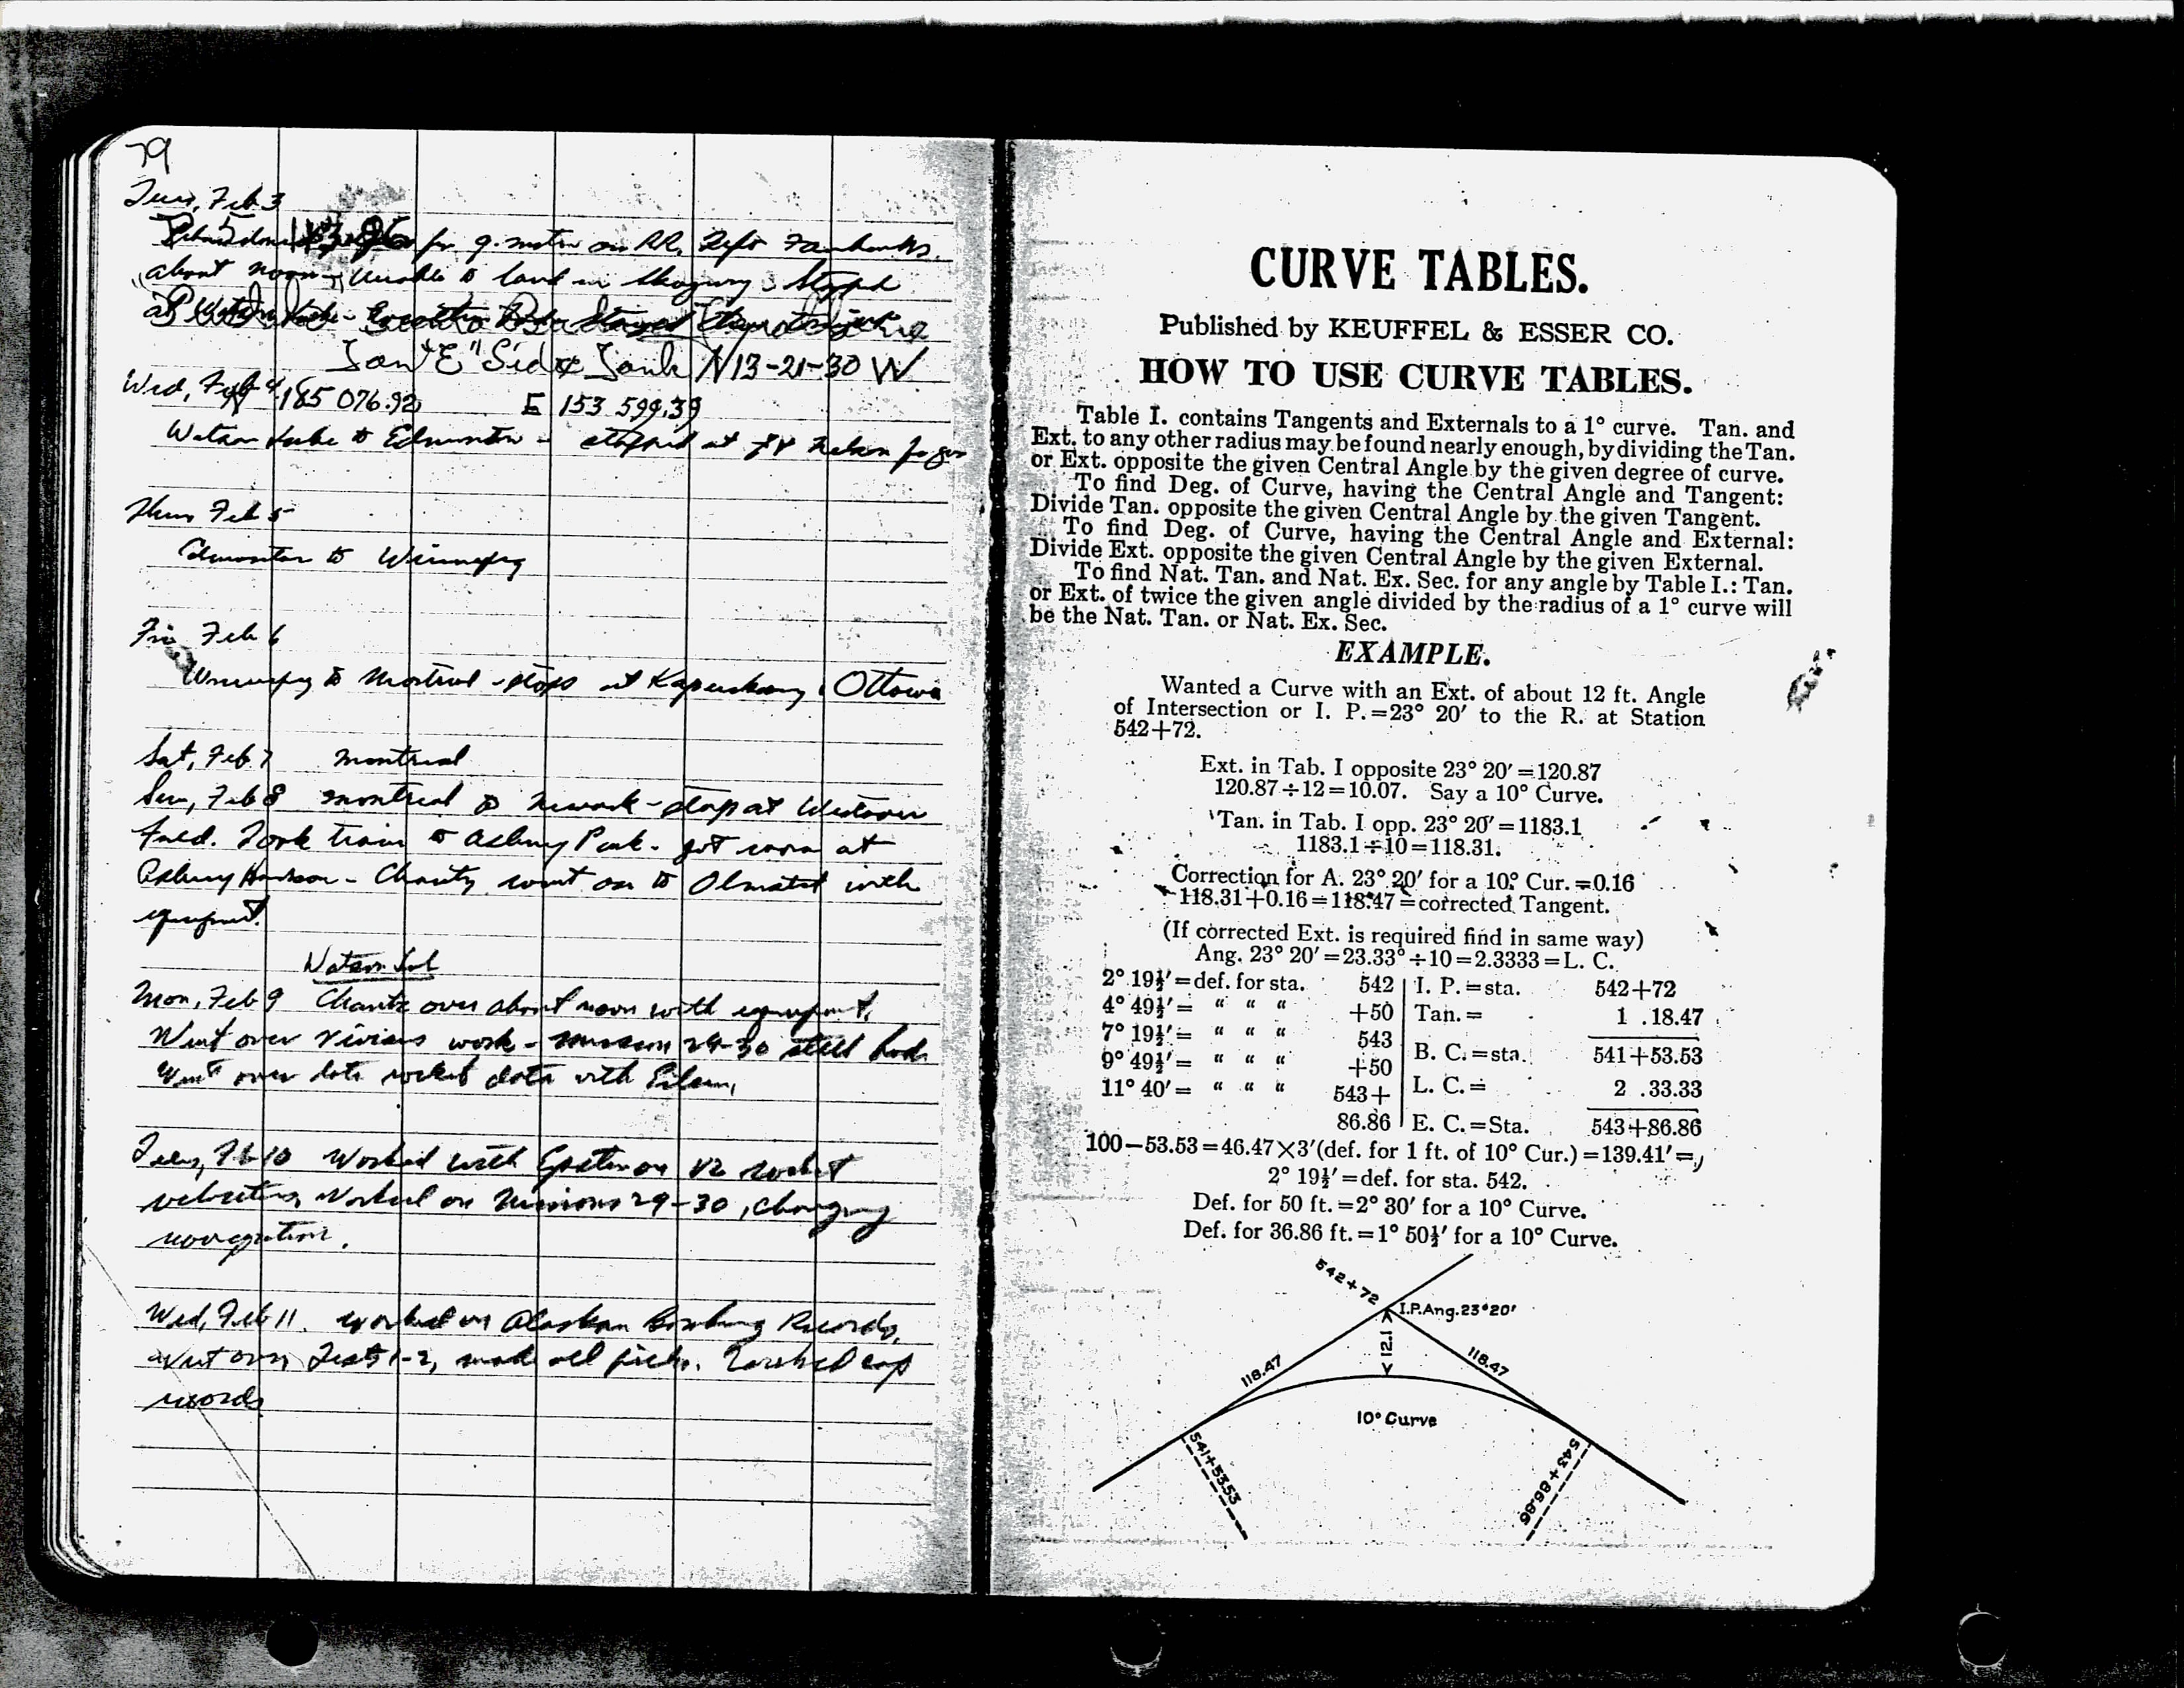 79
Tues, Feb 3
for g. meter on RR. Left Fairbanks
about noon - Unable to land in Skagway. Stopped
at Watson Lake -
"E" Side Tank N13-21-30 W
Wed, Feb 4 185 076.92 E 153 599.39
Watson Lake to Edmonton - stopped at Ft Nelson for gas
Thurs Feb 5
Edmonton to Winnipeg
Fri Feb 6
Winnipeg to Montreal - stops at Kapuskasing, Ottowa
Sat, Feb 7 Montreal
Sun, Feb 8 Montreal to Newark - stop at Westover
Field. Took train to Asbury Park - got room at
Asbury - Charity went on to Olmsted with
equipment.
Watson Lab
Mon, Feb 9 over about noon with equipment.
Went over work - mission 29-30 still bad.
Went over late rocket data with
Tues, Feb 10 Worked with on V2 rocket
velocities, Worked on Missions 29-30, changing
navigation.
Wed, Feb 11. worked on Alaskan Bombing Records,
went over Tests 1-2, made all picks. Finished cap
records
CURVE TABLES.
Published by KEUFFEL & ESSER CO.
HOW TO USE CURVE TABLES.
Table I. contains Tangents and Externals to a 1° curve. Tan. and
Ext. to any other radius may be found nearly enough, by dividing the Tan.
or Ext. opposite the given Central Angle by the given degree of curve.
To find Deg. of Curve, having the Central Angle and Tangent:
Divide Tan. opposite the given Central Angle by the given Tangent.
To find Deg. of Curve, having the Central Angle and External:
Divide Ext. opposite the given Central Angle by the given External.
To find Nat. Tan. and Nat. Ex. Sec. for any angle by Table I.: Tan.
or Ext. of twice the given angle divided by the radius of a 1° curve will
be the Nat. Tan. or Nat. Ex. Sec.
EXAMPLE.
Wanted a Curve with an Ext. of about 12 ft. Angle
of Intersection or I. P.=23° 20′ to the R. at Station
542+72.
Ext. in Tab. I opposite 23° 20′=120.87
120.87÷12=10.07. Say a 10° Curve.
Tan. in Tab. I opp. 23° 20′=1183.1
1183.1÷10=118.31.
Correction for A. 23° 20′ for a 10° Cur.=0.16
118.31+0.16=118.47=corrected Tangent.
(If corrected Ext. is required find in same way)
Ang. 23° 20′=23.33°÷10=2.3333=L. C.
2° 19½′=def. for sta. 542 I. P.=sta. 542+72
4° 49½′= “ “ “ +50 Tan.= 1 .18.47
7° 19½′= “ “ “ 543 B. C.=sta. 541+53.53
9° 49½′= “ “ “ +50 L. C.= 2 .33.33
11° 40′= “ “ “ 543+
86.86 E. C.=Sta. 543+86.86
100−53.53=46.47×3′(def. for 1 ft. of 10° Cur.)=139.41′=
2° 19½′=def. for sta. 542.
Def. for 50 ft.=2° 30′ for a 10° Curve.
Def. for 36.86 ft.=1° 50½′ for a 10° Curve.
542+72
I.P.Ang.23°20′
12.1
118.47
118.47
10° Curve
541+53.53
543+86.86